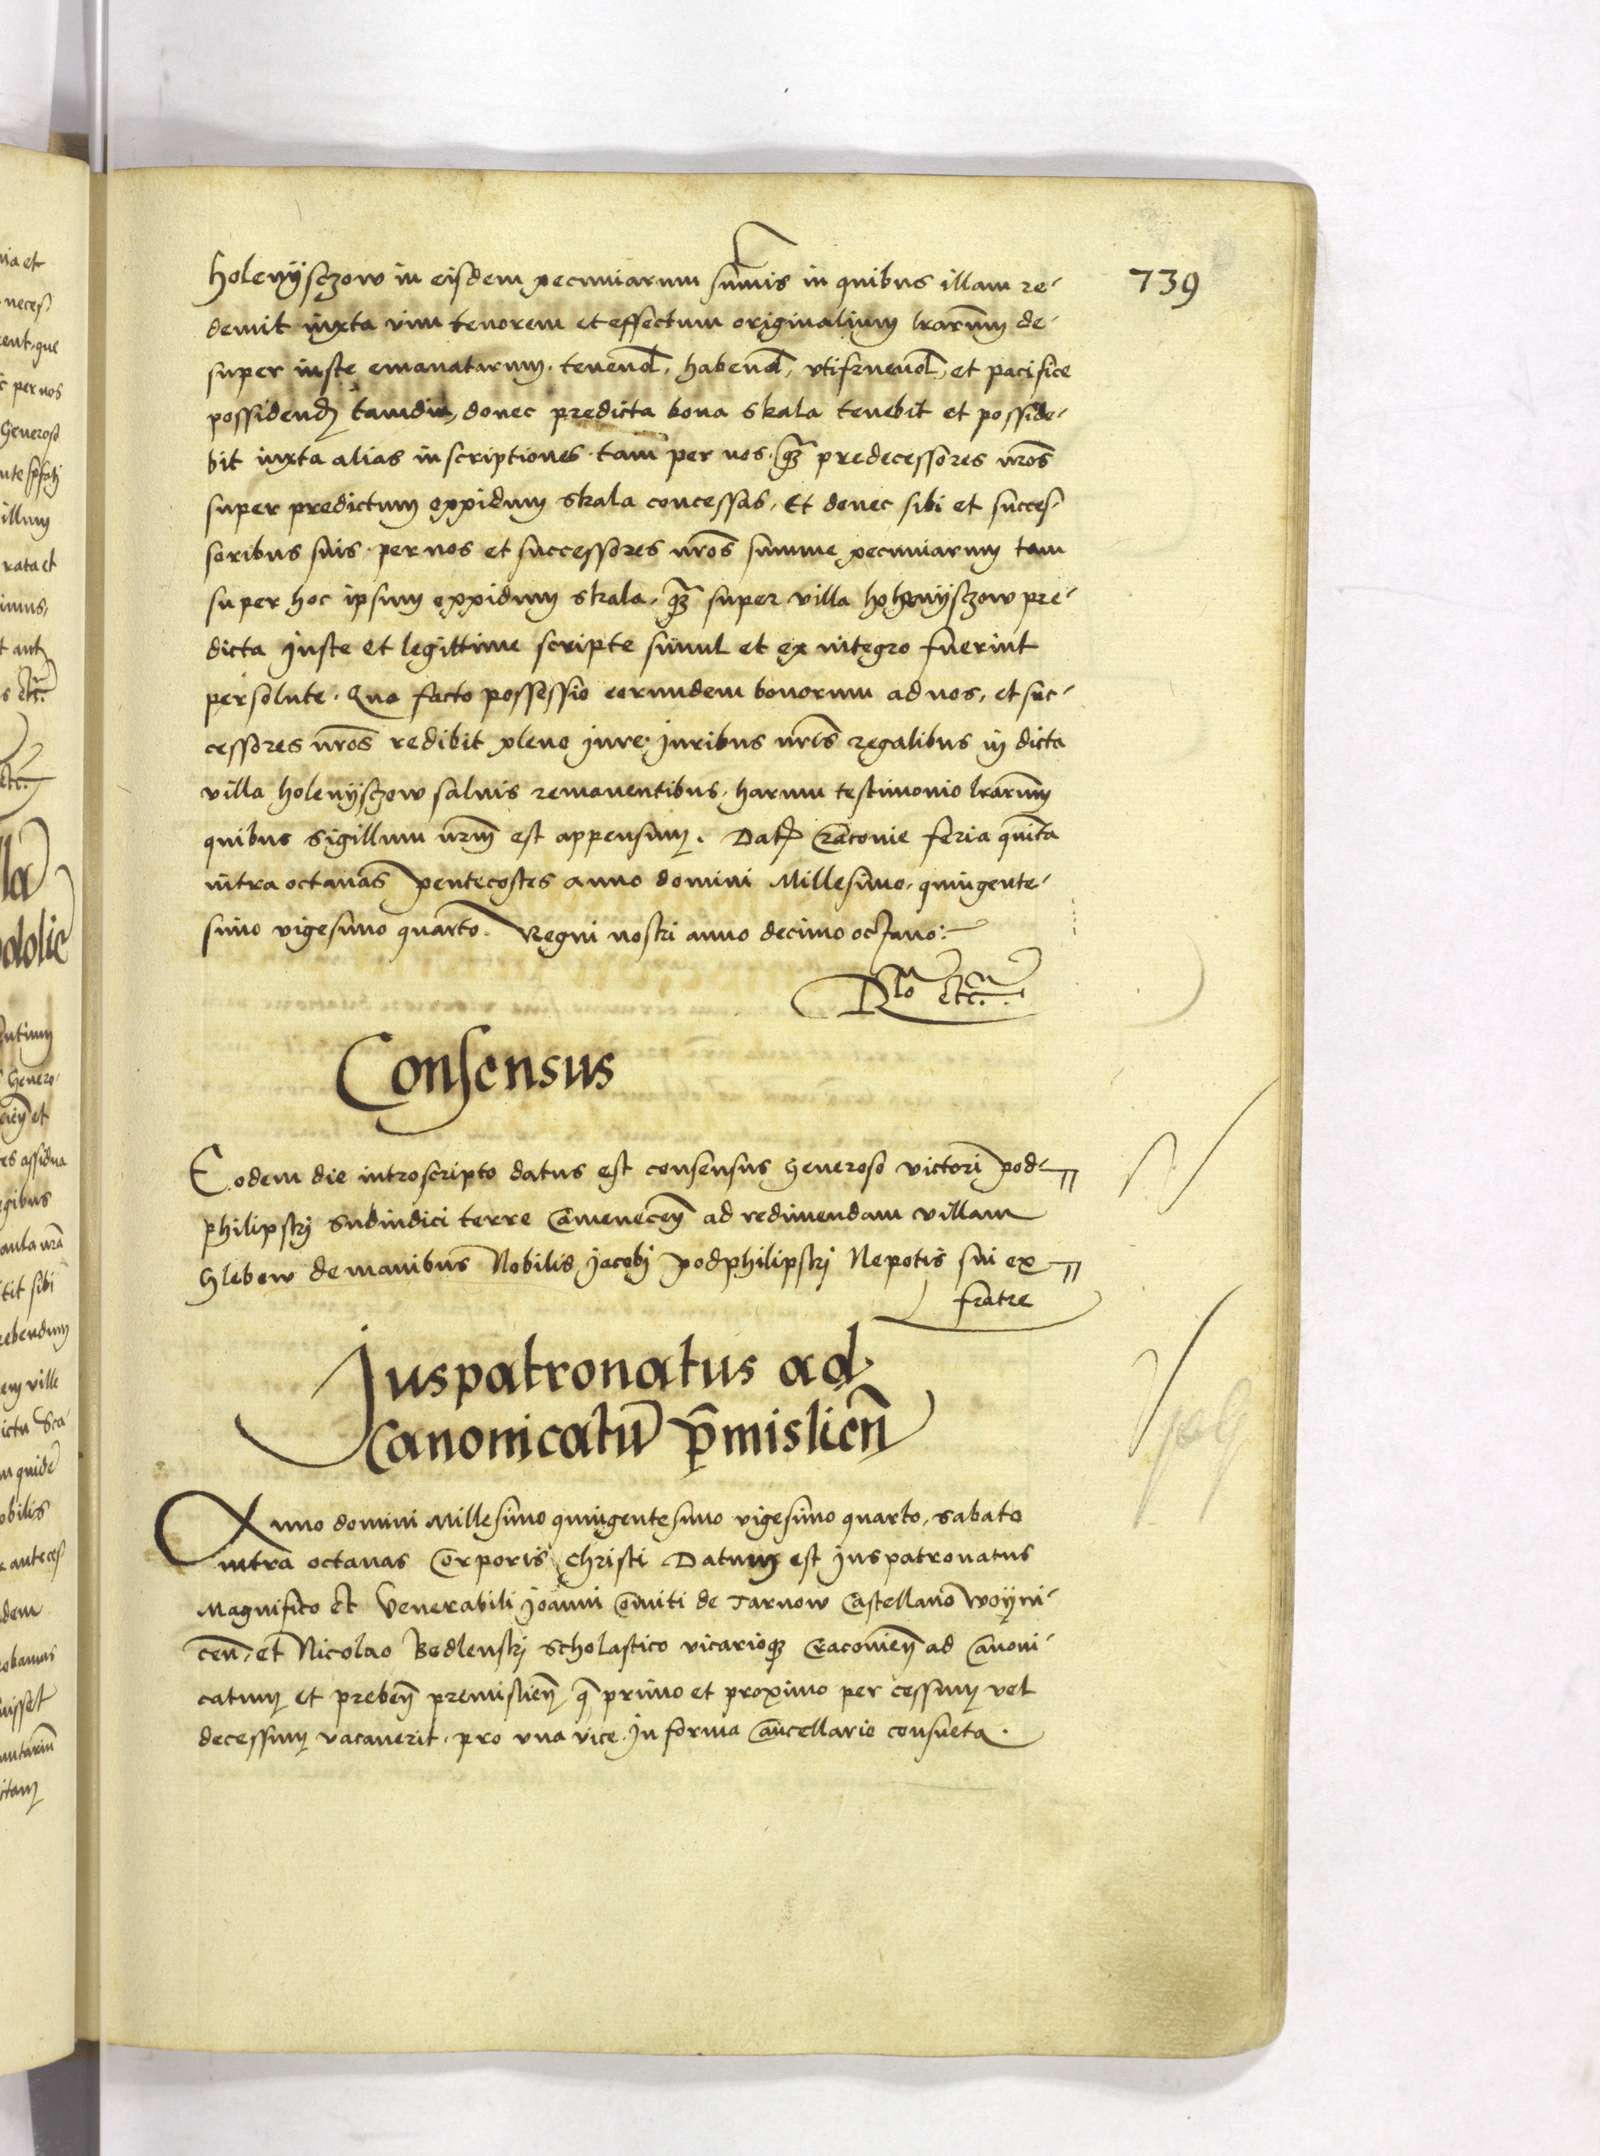 739
holenyysczow in eisdem pecuniarum sumis in quibus illam re-
demit iuxta vim tenorem et effectum originalium lrarum de-
super iuste emanatarum. tenend, habend, vtifruend, et pacifice
possidend tamdiu, donec predicta bona skala tenebit et posside-
bit iuxta alias inscriptiones tam per nos. qz predecessores nros
super predictum oppidum skala concessas, Et donec sibi et succes-
soribus suis per nos et successores nros summe pecuniarum tam
super hoc ipsum oppidum skala, qz super villa holenyysczow pre-
dicta Juste et legittime scripte simul et ex integro fuerint
persolute. Quo facto possessio eorundem bonorum ad nos, et suc-
cessores nros redibit pleno Jure, Juribus nris regalibus in dicta
villa holenyysczow saluis remanentibus, harum testimonio lrarum
quibus sigillum nrm est appensum. Dat Craconie feria quinta
intra octauas pentecostes anno domini Millesimo, quingente-
simo vigesimo quarto. Regni nostri anno decimo octauo.
Rlo etc.
Consensus
Eodem die introscripto datus est consensus Generoso victori pod-
philipskj Subiudici terre Camenecen ad redimendam villam
Glebow de manibus Nobilis Jacobj podphilipskj Nepotis sui ex
fratre
Juspatronatus ad
Canonicatu pmislien
Anno domini Millesimo quingentesimo vigesimo quarto, sabato
intra octauas Corporis Christi Datum est Juspatronatus
Magnifico et Venerabili Joanni Comiti de Tarnow Castellano woyni-
cen, et Nicolao Bedlenskj scholastico vicarioqz Cracouien ad Canoni-
catum et preben premislien q primo et proximo per cessum vel
decessum vacauerit, pro vna vice. In forma Cancellarie consueta.